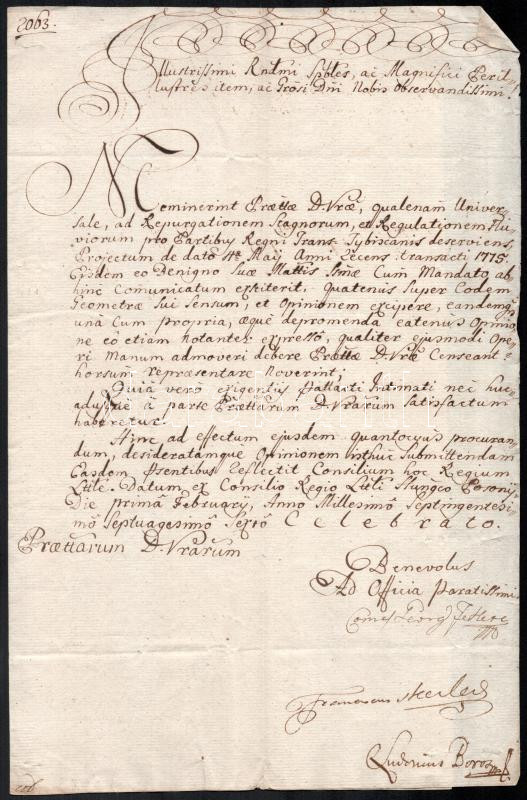 2063.
Illustrissimi Rndmi Spbles, ac Magnifici Peril
lustres item, ac Grosi Dni Nobis Observandissimi!
Meminerint Praettae D. Vrae, qualenam Univer-
sale, ad Repurgationem Stagnorum, et Regulationem Flu-
viorum pro Partibus Regni Trans-Tybiscanis deserviens,
Projectum de dato May Anni recens transacti 1775.
Eisdem eo Benigno Suae Mattis Smae Cum Mandato ab
hinc Comunicatum extiterit, quatenus super Eodem
Geometrae Sui Sensum, et Opinionem excipere, eandemq
unà Cum propria, aeque depromenda eatenus Opinio
ne eò etiam notanter expresso, qualiter ejusmodi Ope
ri Manum admoveri debere Praettae D. Vrae Censeant
horsum repraesentare Noverint;
Quia verò exigentiis Intimati nec huc
adusque à parte Praettarum D. Vrarum satisfactum
haberetur:
Hinc ad effectum ejusdem quantocyus procuran-
dum, desideratamque Opinionem isthuc Submittendam
Easdem Psentibus reflectit Consilium hoc Regium
Lttle. Datum ex Consilio Regio Lttli Hungco Posony
Die primâ February, Anno Millesimô Septingentesi-
mô Septuagesimô Sextô Celebrato.
Praettarum D. Vrarum
Benevolus
Ad Officia Paratissimi
Comes Georg
Franciscus
Ludovicus Boros